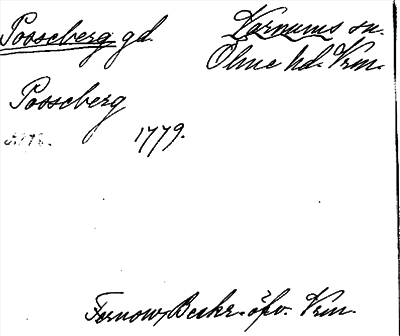 Posseberg gd.
Varnums sn.
Ölme hd. Vrm.
Posseberg
1779.
Fernow, Beskr. öfv. Vrm.